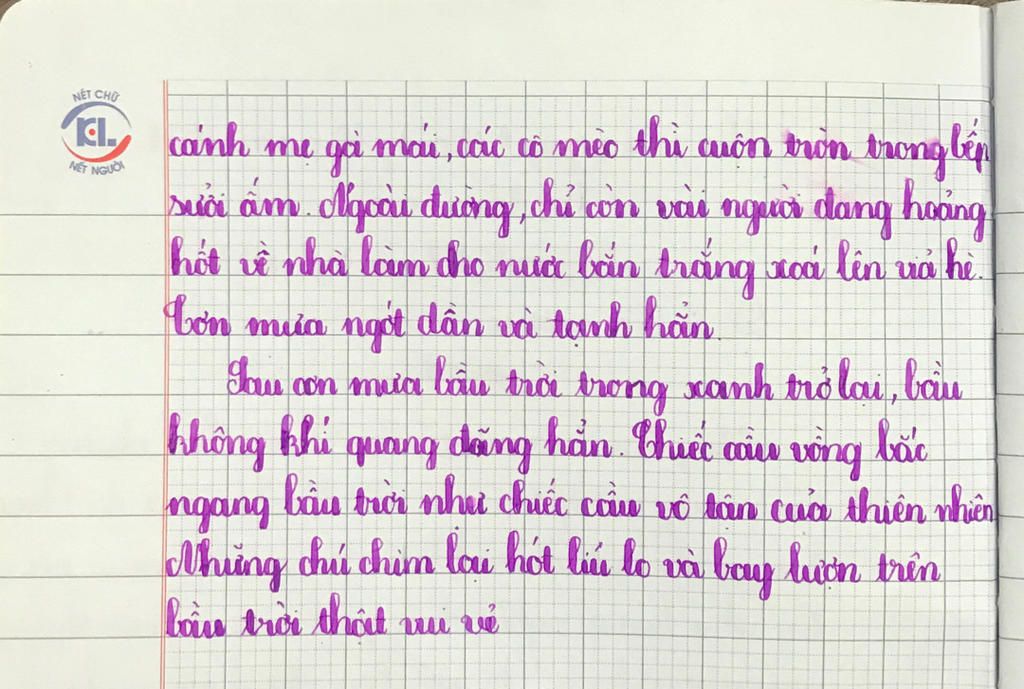 NÉT CHỮ
KL
NẾT NGƯỜI
cánh mẹ gà mái, các cô mèo thì cuộn tròn trong bếp
sưởi ấm. Ngoài đường, chỉ còn vài người đang hoảng
hốt về nhà làm cho nước bắn trắng xoá lên vỉa hè.
Cơn mưa ngớt dần và tạnh hẳn.
Sau cơn mưa bầu trời trong xanh trở lại, bầu
không khí quang đãng hẳn. Chiếc cầu vồng bắc
ngang bầu trời như chiếc cầu vô tận của thiên nhiên
Những chú chim lại hót líu lo và bay lượn trên
bầu trời thật vui vẻ